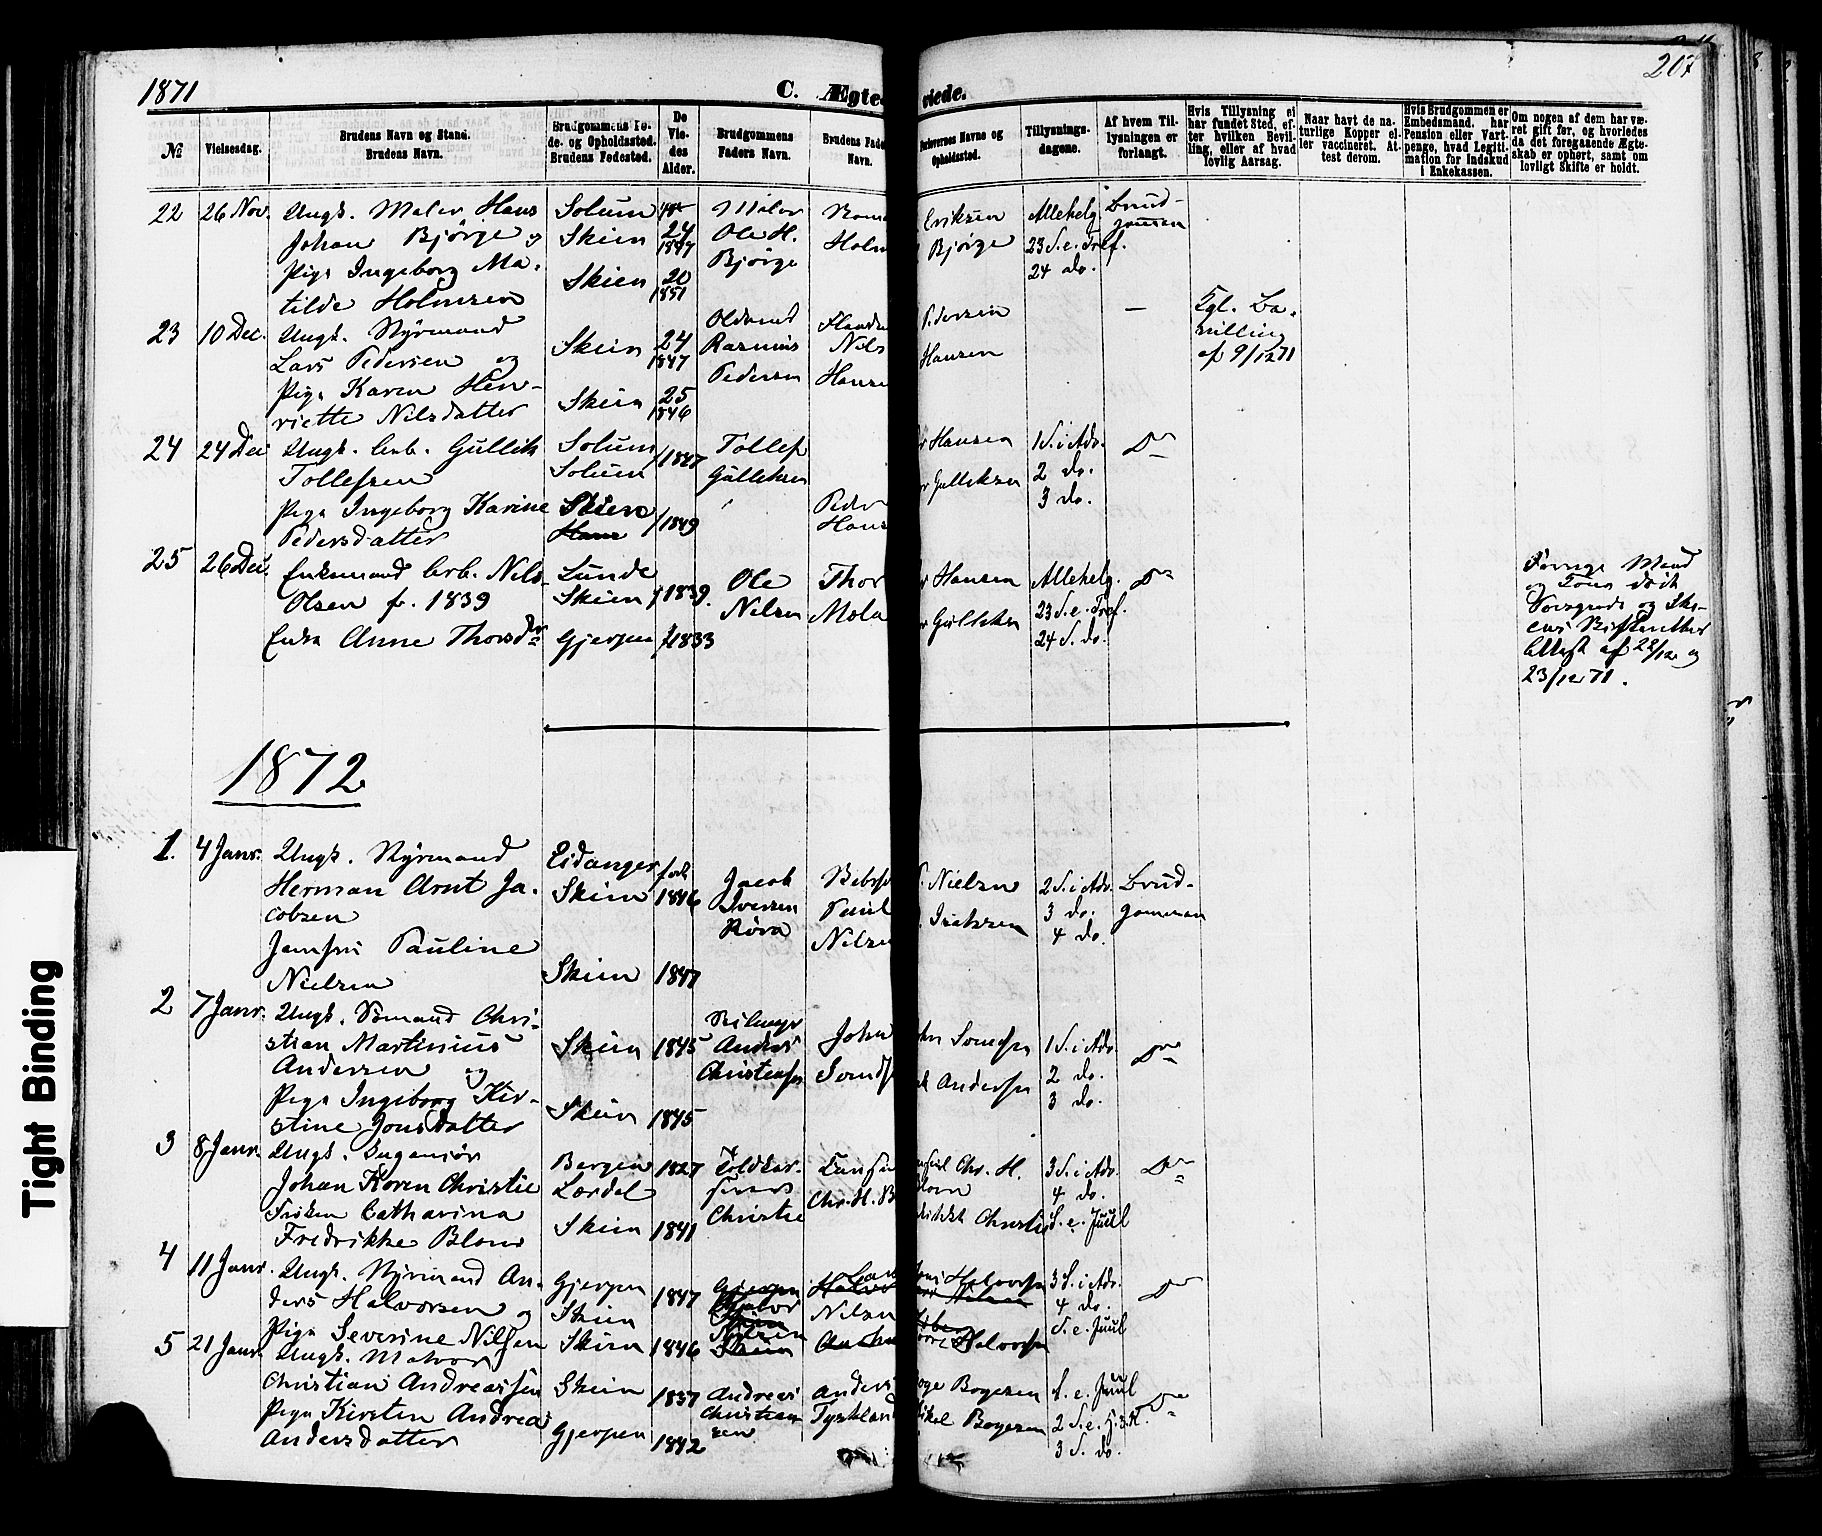 1871
C. Ægte
viede.
207
№
Vielsesdag.
Brudens Navn og Stand.
Brudens Navn.
Brudgommens Fø-
de. og Opholdssted.
Brudens Fødested.
De
Vie-
des
Alder.
Brudgommens
Faders Navn.
Brudens Fade
Navn.
Forlovernes Navne og
Opholdssted.
Tillysnings-
dagene.
Af hvem Til-
lysningen er
forlangt.
Hvis Tillysning ei
har fundet Sted, ef-
ter hvilken Bevil-
ling, eller af hvad
lovlig Aarsag.
Naar havt de na-
turlige Kopper el-
ler vaccineret. At-
test derom.
Hvis Brudgommen er
Embedsmand, har
Pension eller Vart-
penge, hvad Legiti-
mation for Indskud
i Enkekassen.
Om nogen af dem har væ-
ret gift før, og hvorledes
da det foregaaende Ægte-
skab er ophørt, samt om
lovligt Skifte er holdt.
22 26 Nov. Ungk. Maler Hans
Johan Bjørge og
Pige Ingeborg Ma-
tilde Holmsen
Solum
Skien
Skien
24
1847
20
1851
Maler
Ole H.
Bjørge
Holm
Eriksen
Bjørge
Allehelg.
23 S. e. Tref.
24 do.
Brud-
gommen
23 10 Dec. Ungk. Styrmand
Lars Pedersen og
Pige Karen Hen-
riette Nilsdatter
Skien
Skien
24
1847
25
1846
Oldermd
Rasmus
Pedersen
Nils
Hanse
Pedersen
Hansen
—
Kgl. Be-
villing
af 9/12 71
24 24 Dec Ungk. Arb. Gullik
Tollefsen
Pige Ingeborg Karine
Pedersdatter
Solum
Solum
Skien
f 1847
f 1849
Tollef
Gulliksen
Peder
Hans
Hansen
Gulliksen
1 S. i Adv.
2 do.
3 do.
Do
25 26 Dec. Enkemand Arb. Nils
Olsen f. 1839
Enke Anne Thorsdr
Lunde
Skien
Gjerpen
f 1839.
f 1833
Ole
Nilsen
Thor
Mola
Hansen
Gulliksen
Allehelg.
23 S. e. Tref.
24 S. do.
Do
Forrige Mand
og Kone død
Porsgrund og Ski-
ens Skifteretter
Attest af 22/12 og
23/12 71.
1872
1. 4 Janr. Ungk. Styrmand
Herman Arnt Ja-
cobsen
Jomfru Pauline
Nielsen
Eidanger
Skien
Skien
født
1846
1847
Jacob
Iversen
Røra
Poul
Nilsen
Nielsen
Isaksen
2 S. i Adv.
3 do.
4 do.
Brud-
gommen
2 7 Janr. Ungk. Sømand Chri-
stian Martinius
Andersen og
Pige Ingeborg Kir-
stine Jonsdatter
Skien
Skien
1845
1845
Anders
Christensen
John
Anderssen
1 S. i Adv.
2 do.
3 do.
Do
3 8 Janr. Ungk. Ingeniør
Johan Koren Christie
Frøken Catharina
Fredrikke Blom
Bergen
Lærdal
Skien
1827
1841
Toldkas-
serer
Christie
Chr. H. B
Chr. H.
Blom
Christie
3 S. i Adv.
4 do.
S. e. Juul
Do
4 11 Janr. Ungk. Styrmand An-
ders Halvorsen og
Pige Severine Nilsen
Gjerpen
Skien
Skien
1847
1846
Halvor
Nilsen
Halvorsen
Nilsen
Halvorsen
3 S. i Adv.
4 do.
S. e. Juul
Do
5 21 Janr. Ungk. Matros
Christian Andreassen
Pige Kirsten Andrea
Andersdatter
Skien
Gjerpen
1837
1842
Andreas
Christian
sen
Anders
Tyskland
Bogesen
Mikel Bogesen
S. e. Juul
2 S. e. H. 3 K.
3 S. do.
Do
Tight Binding